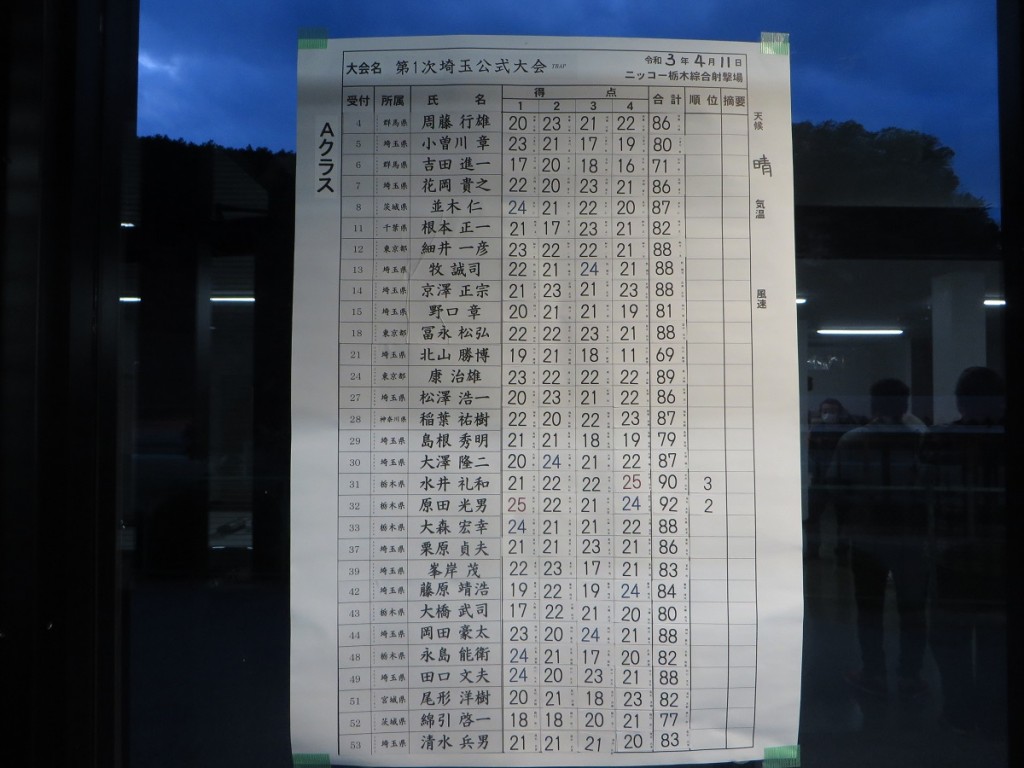 大会名 第1次埼玉公式大会 TRAP
令和 3 年 4 月 11 日
ニッコー栃木綜合射撃場
受付 所属 氏 名 得 点 合計 順位 摘要
1 2 3 4
Aクラス
天候 晴
気温
風速
4 群馬県 周藤 行雄 20 23 21 22 86
5 埼玉県 小曽川 章 23 21 17 19 80
6 群馬県 吉田 進一 17 20 18 16 71
7 埼玉県 花岡 貴之 22 20 23 21 86
8 茨城県 並木 仁 24 21 22 20 87
11 千葉県 根本 正一 21 17 23 21 82
12 東京都 細井 一彦 23 22 22 21 88
13 埼玉県 牧 誠司 22 21 24 21 88
14 埼玉県 京澤 正宗 21 23 21 23 88
15 埼玉県 野口 章 20 21 21 19 81
18 東京都 冨永 松弘 22 22 23 21 88
21 埼玉県 北山 勝博 19 21 18 11 69
24 東京都 康 治雄 23 22 22 22 89
27 埼玉県 松澤 浩一 20 23 21 22 86
28 神奈川県 稲葉 祐樹 22 20 22 23 87
29 埼玉県 島根 秀明 21 21 18 19 79
30 埼玉県 大澤 隆二 20 24 21 22 87
31 栃木県 水井 礼和 21 22 22 25 90 3
32 栃木県 原田 光男 25 22 21 24 92 2
33 栃木県 大森 宏幸 24 21 21 22 88
37 埼玉県 栗原 貞夫 21 21 23 21 86
39 埼玉県 峯岸 茂 22 23 17 21 83
42 埼玉県 藤原 靖浩 19 22 19 24 84
43 栃木県 大橋 武司 17 22 21 20 80
44 埼玉県 岡田 豪太 23 20 24 21 88
48 栃木県 永島 能衛 24 21 17 20 82
49 埼玉県 田口 文夫 24 20 23 21 88
51 宮城県 尾形 洋樹 20 21 18 23 82
52 茨城県 綿引 啓一 18 18 20 21 77
53 埼玉県 清水 兵男 21 21 21 20 83